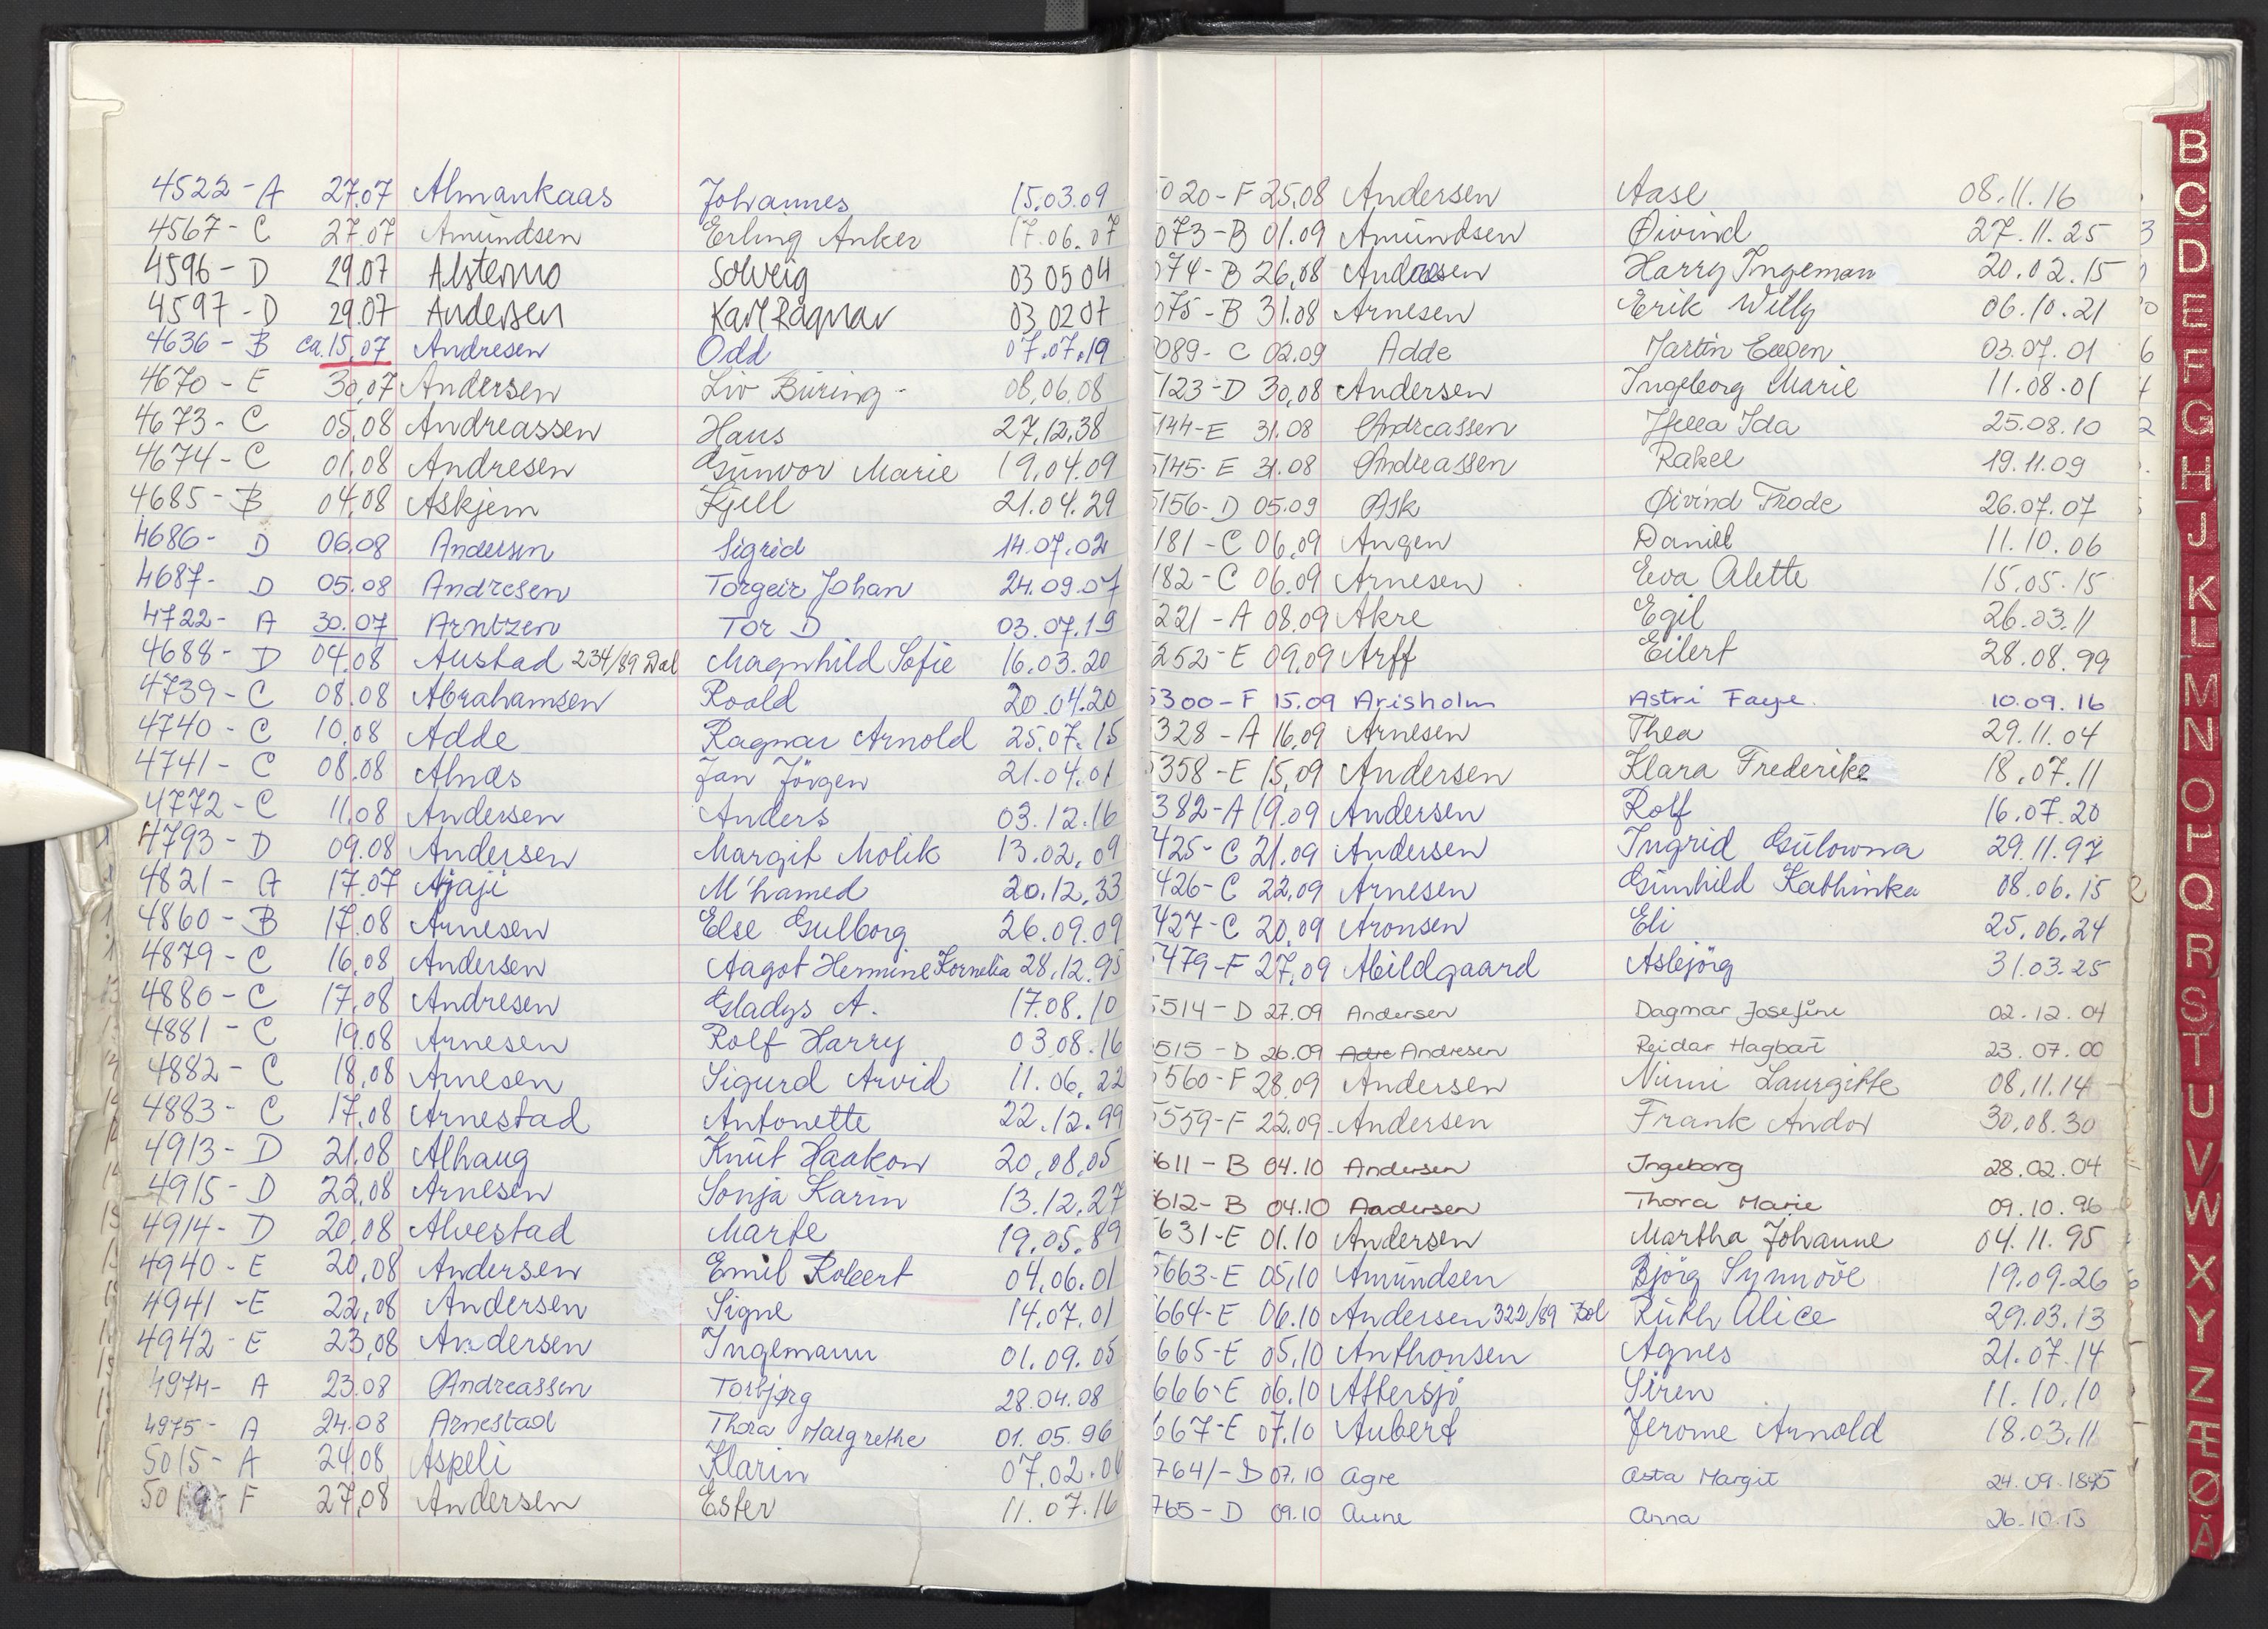 4522-A 27.07 Almankaas Johannes 15.03.09
4567-C 27.07 Amundsen Erling Anker 17.06.07
4596-D 29.07 Alstermo Solveig 03 05 04
4597-D 29.07 Andersen Karl Ragnar 03 02 07
4636-B ca.15.07 Andresen Odd 07.07.19
4670-E 30.07 Andersen Liv Büring 08.06.08
4673-C 05.08 Andreassen Hans 27.12.38
4674-C 01.08 Andresen Gunvor Marie 19.04.09
4685-B 04.08 Askjem Kjell 21.04.29
4686-D 06.08 Andersen Sigrid 14.07.02
4687-D 05.08 Andresen Torgeir Johan 24.09.07
4722-A 30.07 Arntzen Tor D 03.07.19
4688-D 04.08 Austad 234/89 Dal Magnhild Sofie 16.03.20
4739-C 08.08 Abrahamsen Roald 20.04.20
4740-C 10.08 Adde Ragnar Arnold 25.07.15
4741-C 08.08 Alnæs Jan Jörgen 21.04.01
4772-C 11.08 Andersen Anders 03.12.16
4793-D 09.08 Andersen Margit Molik 13.02.09
4821-A 17.07 Ajaji M'hamed 20.12.33
4860-B 17.08 Arnesen Else Gulborg 26.09.09
4879-C 16.08 Andersen Aagot Hermine Kornelia 28.12.95
4880-C 17.08 Andresen Gladys A. 17.08.10
4881-C 19.08 Arnesen Rolf Harry 03.08.16
4882-C 18.08 Arnesen Sigurd Arvid 11.06.22
4883-C 17.08 Arnestad Antonette 22.12.99
4913-D 21.08 Alhaug Knut Haakon 20.08.05
4915-D 22.08 Arnesen Sonja Karin 13.12.27
4914-D 20.08 Alvestad Marte 19.05.89
4940-E 20.08 Andersen Emil Robert 04.06.01
4941-E 22.08 Andersen Signe 14.07.01
4942-E 23.08 Andersen Ingemann 01.09.05
4974-A 23.08 Andreassen Torbjørg 28.04.08
4975-A 24.08 Arnestad Thora Margrethe 01.05.96
5015-A 24.08 Aspeli Klarin 07.02.
5019-F 27.08 Andersen Ester 11.07.16
020-F 25.08 Andersen Aase 08.11.16
073-B 01.09 Amundsen Øivind 27.11.25
074-B 26.08 Andresen Harry Ingeman 20.02.15
075-B 31.08 Arnesen Erik Willy 06.10.21
089-C 02.09 Adde Martin Eugen 03.07.01
5123-D 30.08 Andersen Ingeborg Marie 11.08.01
5144-E 31.08 Andreassen Ida 25.08.10
5145-E 31.08 Andreassen Rakel 19.11.09
5156-D 05.09 Ask Øivind Frode 26.07.07
181-C 06.09 Angen Daniel 11.10.06
182-C 06.09 Arnesen Eva Alette 15.05.15
221-A 08.09 Akre Egil 26.03.11
252-E 09.09 Arff Eilert 28.08.99
5300-F 15.09 Arisholm Astri Faye. 10.09.16
328-A 16.09 Arnesen Thea 29.11.04
358-E 15.09 Andersen Klara Frederike 18.07.11
382-A 19.09 Andersen Rolf 16.07.20
425-C 21.09 Andersen Ingrid Gulowna 29.11.97
426-C 22.09 Arnesen Gunhild Kathinka 08.06.15
427-C 20.09 Aronsen Eli 25.06.24
479-F 27.09 Abildgaard Asbjörg 31.03.25
5514-D 27.09 Andersen Dagmar Josefine 02.12.04
515-D 26.09 Adre Andresen Reidar Hagbart 23.07.00
560-F 28.09 Andersen Laurgitte 08.11.14
5559-F 22.09 Andersen Frank Andor 30.08.30
611-B 04.10 Andersen Ingeborg 28.02.04
612-B 04.10 Andersen Thora Marie 09.10.96
631-E 01.10 Andersen Martha Johanne 04.11.95
663-E 05.10 Amundsen Björg Synnöve 19.09.26
664-E 06.10 Andersen 322/89 Ruth Alice 29.03.13
665-E 05.10 Anthonsen Agnes 21.07.14
666-E 06.10 Attersjö Siren 11.10.10
667-E 07.10 Aubert Jerome Arnold 18.03.11
764/-D 07.10 Agre Asta Margit 24.09.1895
765-D 09.10 Aune Anna 26.10.15
B
C
D
E
F
G
H
J
K
L
M
N
O
P
Q
R
S
T
U
V
W
X
Y
Z
Æ
Ø
Å